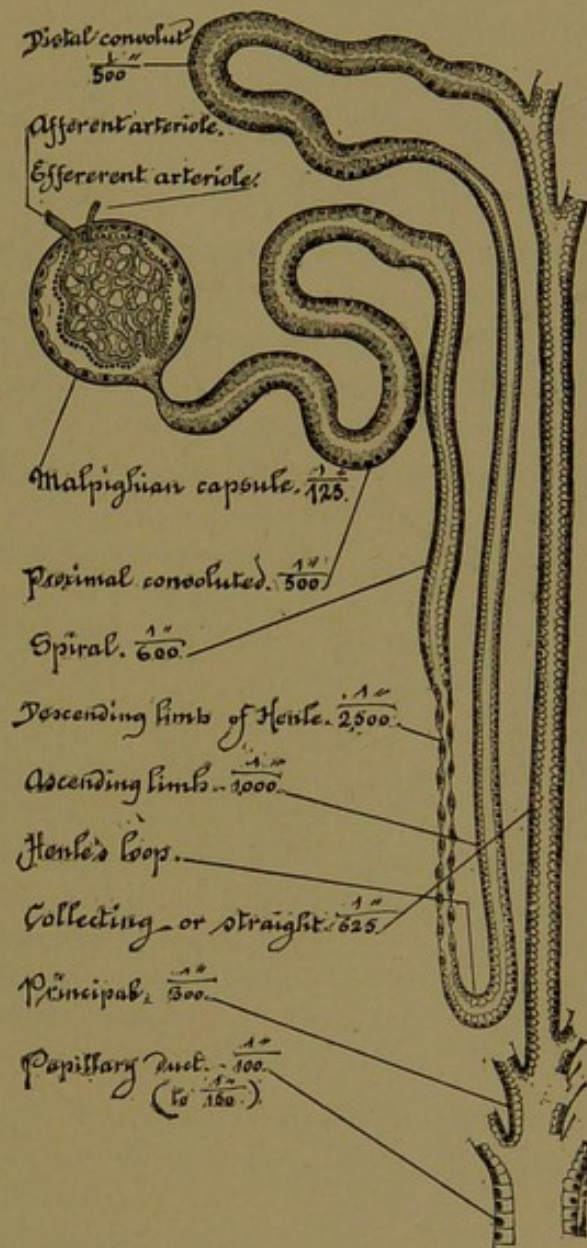 Distal convolut
1"/500
Afferent arteriole.
Effererent arteriole.
Malpighian capsule. 1"/125.
Proximal convoluted. 1"/500
Spiral. 1"/600
Descending limb of Henle. 1"/2,500
Ascending limb. 1"/1,000
Henle's loop.
Collecting or straight. 1"/625
Principal. 1"/300
Papillary duct. 1"/100
(to 1"/160)